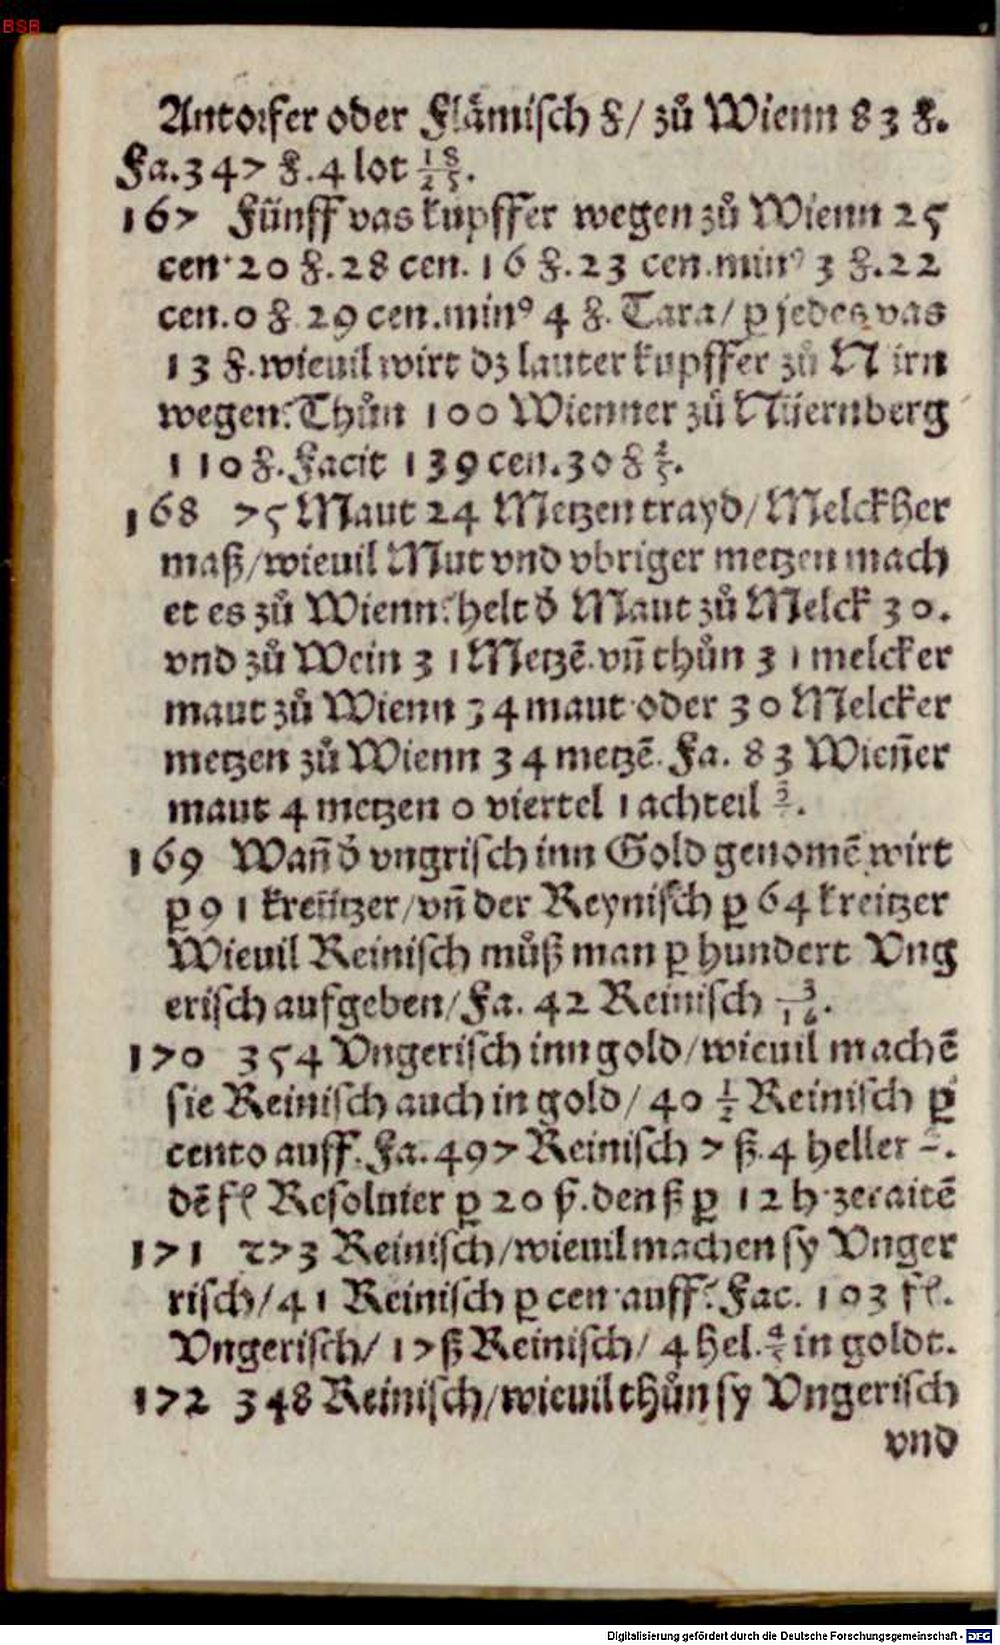 BSB
Antorfer oder Flämisch ℔/ zů Wienn 83 ℔.
Fa. 347 ℔. 4 lot 18/25.
167 Fünff vas kupffer wegen zů Wienn 25
cen. 20 ℔. 28 cen. 16 ℔. 23 cen. minꝰ 3 ℔. 22
cen. 0 ℔ 29 cen. minꝰ 4 ℔. Tara/ ꝑ jedes vas
13 ℔. wieuil wirt dz lauter kupffer zů Nirn
wegen: Thůn 100 Wienner zů Nüernberg
110 ℔. Facit 139 cen. 30 ℔ ⅘.
168 75 Maut 24 Metzen trayd/ Melckher
maß/ wieuil Mut vnd vbriger metzen mach
et es zů Wienn: helt d̄ Maut zů Melck 30.
vnd zů Wein 31 Metzē. vn̄ thůn 31 melcker
maut zů Wienn 34 maut oder 30 Melcker
metzen zů Wienn 34 metzē. Fa. 83 Wien̄er
maut 4 metzen 0 viertel 1 achteil
169 Wan̄ d̄ vngrisch inn Gold genomē wirt
ꝑ 91 kreüttzer/ vn̄ der Reynisch ꝑ 64 kreitzer
Wieuil Reinisch můß man ꝑ hundert Vng
erisch aufgeben/ Fa. 42 Reinisch 3/16.
170 354 Vngerisch inn gold/ wieuil machē
sie Reinisch auch in gold/ 40 ½ Reinisch ꝑ
cento auff. Fa. 497 Reinisch 7 ß. 4 heller
dē fl Resoluier ꝑ 20 ß. den ß ꝑ 12 h zeraitē
171 273 Reinisch/ wieuil machen sy Vnger
risch/ 41 Reinisch ꝑ cen auff: Fac. 193 fl.
Vngerisch/ 17 ß Reinisch/ 4 hel. ⅘ in goldt.
172 348 Reinisch/ wieuil thůn sy Vngerisch
vnd
Digitalisierung gefördert durch die Deutsche Forschungsgemeinschaft - DFG